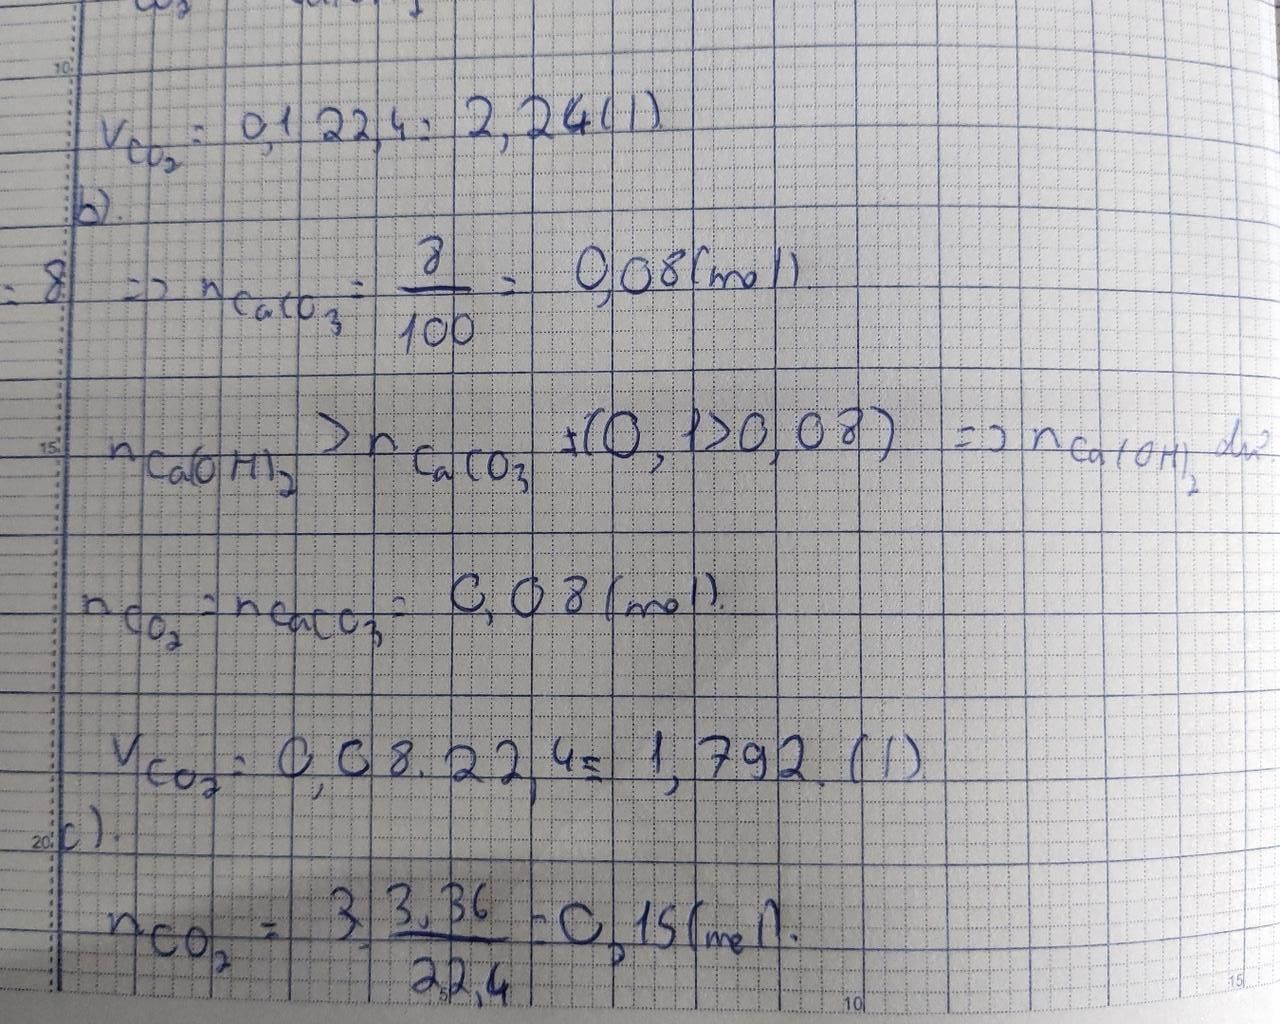 V_CO₂ = 0,1 22,4 = 2,24 (l)
b).
= 8 => n_CaCO₃ = 8/100 = 0,08 (mol)
n_Ca(OH)₂ > n_CaCO₃ (0,1>0,08) => n_Ca(OH)₂ dư
n_CO₂ = n_CaCO₃ = 0,08 (mol).
V_CO₂ = 0,08.22,4 = 1,792 (l)
c).
n_CO₂ = 3 3,36/22,4 = 0,15 (mol).